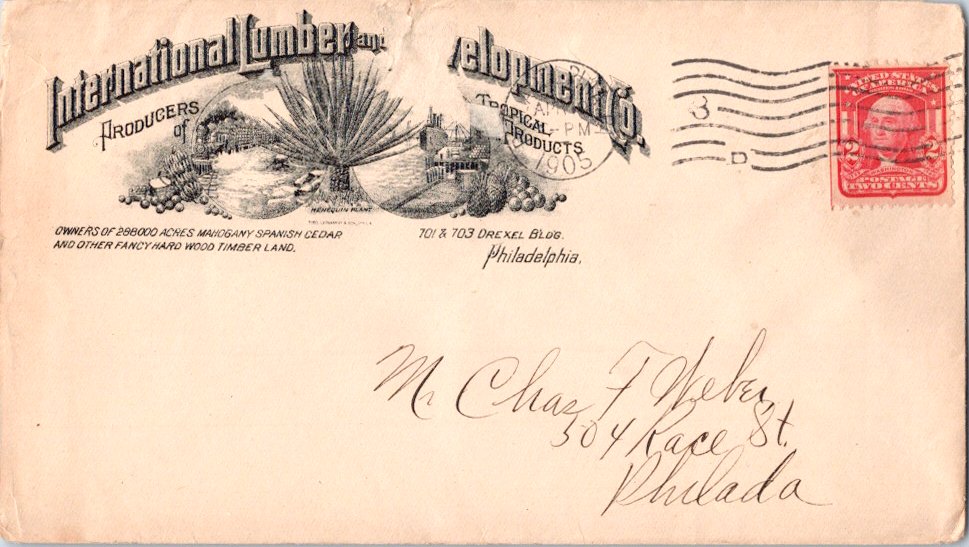 International Lumber and velopment Co.
PRODUCERS
of
TROPICAL
PRODUCTS
HENEQUIN PLANT
OWNERS OF 288000 ACRES MAHOGANY SPANISH CEDAR
AND OTHER FANCY HARD WOOD TIMBER LAND.
701 & 703 DREXEL BLDG.
Philadelphia,
PM
1905
3
D
UNITED STATES
OF AMERICA
2 2
POSTAGE
TWO CENTS
Mr Chas F Weber
504 Race St.
Philada